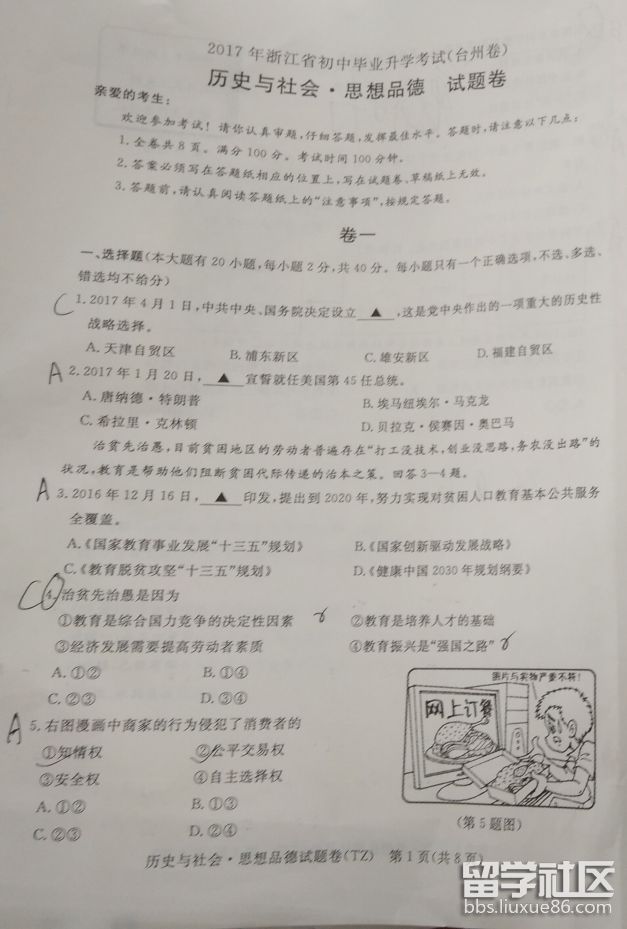 2017年浙江省初中毕业升学考试(台州卷)
历史与社会·思想品德 试题卷
亲爱的考生:
欢迎参加考试!请你认真审题,仔细答题,发挥最佳水平。答题时,请注意以下几点:
1.全卷共8页。满分100分。考试时间100分钟。
2.答案必须写在答题纸相应的位置上,写在试题卷、草稿纸上无效。
3.答题前,请认真阅读答题纸上的“注意事项”,按规定答题。
卷一
一、选择题(本大题有20小题,每小题2分,共40分。每小题只有一个正确选项,不选、多选、
错选均不给分)
C 1.2017年4月1日,中共中央、国务院决定设立 ▲ ,这是党中央作出的一项重大的历史性
战略选择。
A.天津自贸区 B.浦东新区 C.雄安新区 D.福建自贸区
A 2.2017年1月20日, ▲ 宣誓就任美国第45任总统。
A.唐纳德·特朗普 B.埃马纽埃尔·马克龙
C.希拉里·克林顿 D.贝拉克·侯赛因·奥巴马
治贫先治愚,目前贫困地区的劳动者普遍存在“打工没技术,创业没思路,务农没出路”的
状况,教育是帮助他们阻断贫困代际传递的治本之策。回答3—4题。
A 3.2016年12月16日, ▲ 印发,提出到2020年,努力实现对贫困人口教育基本公共服务
全覆盖。
A.《国家教育事业发展“十三五”规划》 B.《国家创新驱动发展战略》
C.《教育脱贫攻坚“十三五”规划》 D.《健康中国2030年规划纲要》
C 4.治贫先治愚是因为
①教育是综合国力竞争的决定性因素 ②教育是培养人才的基础
③经济发展需要提高劳动者素质 ④教育振兴是“强国之路”
A.①② B.①④
C.②③ D.③④
A 5.右图漫画中商家的行为侵犯了消费者的
①知情权 ②公平交易权
③安全权 ④自主选择权
A.①② B.①③
C.②③ D.②④
图片与实物严重不符!
网上订餐
(第5题图)
历史与社会·思想品德试题卷(TZ) 第1页(共8页)
留学社区
bbs.liuxue86.com